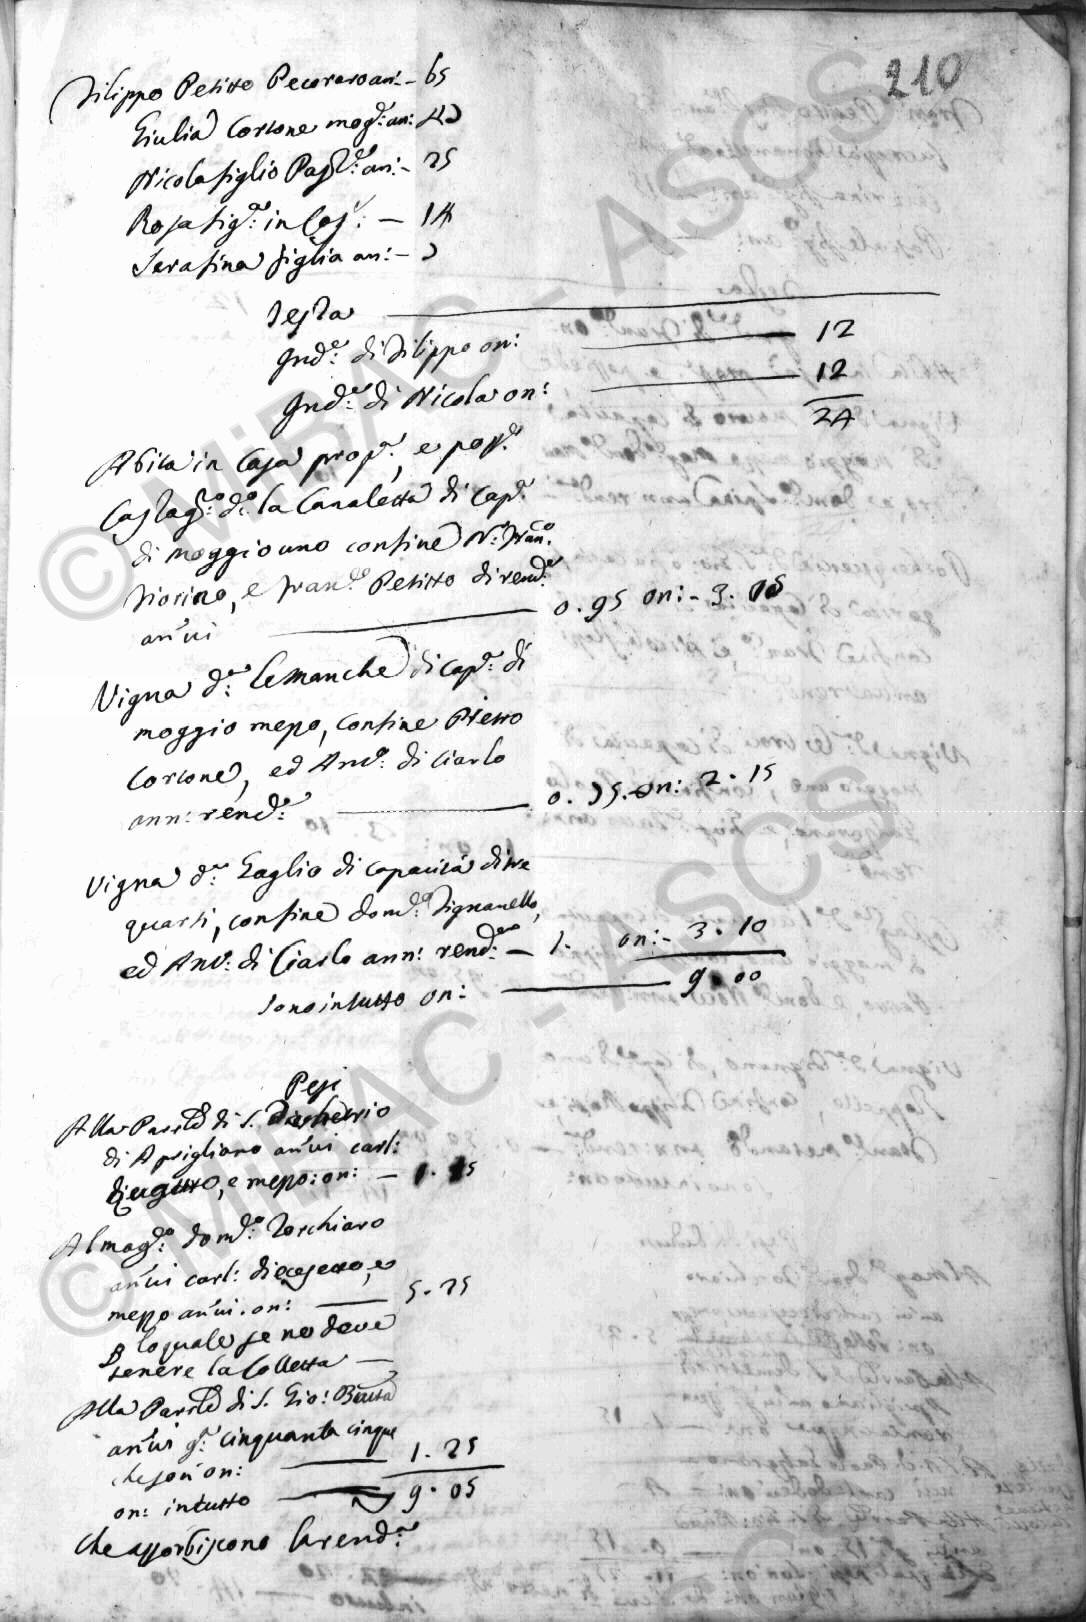 210
Filippo Petitto Pecoraro an: — 65
Giulia Cortone mog:e an: 42
Nicola figlio an: — 25
Rosa fig:a in Cas: — 14
Serafina figlia an: — 2
Testa
Ind:a di Filippo on: 12
Ind:a di Nicola on: 12
24
Abita in Casa prop:a, e poss:e
Castag:to d:o la Canaletta di cap:tà
di moggio uno confine N: Fran:co
Fiorino, e Fran:co Petitto di rend:a
an:ui 0.95 on: - 3.05
Vigna d:a le Manche di cap:tà di
moggio mezo, confine Pietro
Cortone, ed Ant:o di Ciarlo
ann: rend:a 0.75. on: 2.15
Vigna d:a Gaglio di capacità di tre
quarti, confine Dom:co Fignanello,
ed Ant:o di Ciarlo ann: rend:a — 1. on: - 3.10
sono in tutto on: 9.00
Pesi
Alla Parr:le di S.
di Aprigliano an:ui carl:
e mezo: on: —
Al mag:co Dom:co Torchiaro
an:ui carl: diecesette, e
mezo an:ui. on: 5.25
lo quale se ne deve
tenere la Colletta —
Alla Parr:le di S. Gio: Battista
an:ui g:a cinquanta cinque
che son on: 1.25
on: in tutto 9.05
Che assorbiscono la rend:a
© MiBAC - ASCS
© MiBAC - ASCS